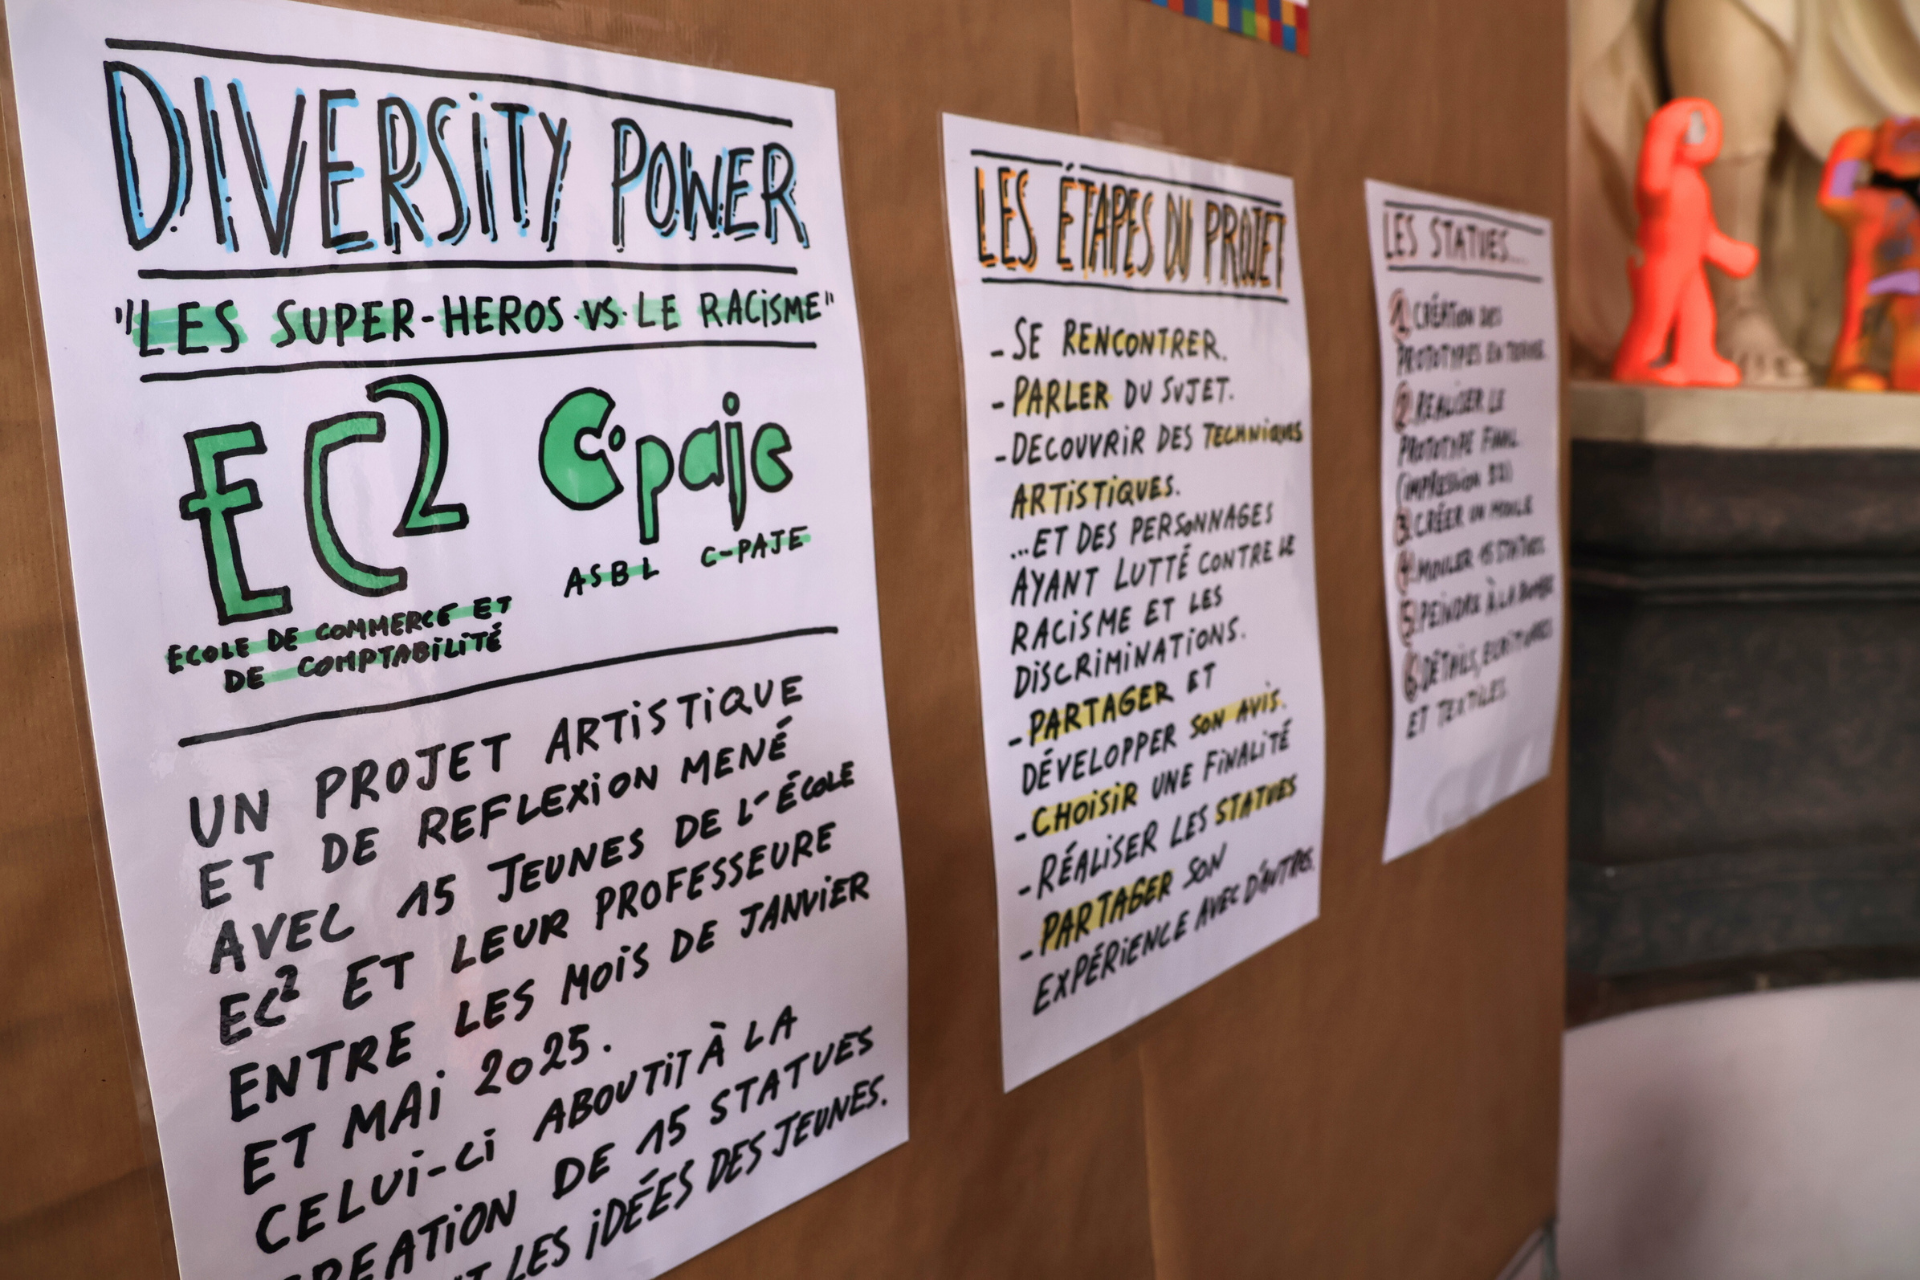 DIVERSITY POWER
"LES SUPER-HEROS VS LE RACISME"
EC2 C-paje
ECOLE DE COMMERCE ET
DE COMPTABILITÉ
ASBL C-PAJE
UN PROJET ARTISTIQUE
ET DE REFLEXION MENÉ
AVEC 15 JEUNES DE L'ÉCOLE
EC² ET LEUR PROFESSEURE
ENTRE LES MOIS DE JANVIER
ET MAI 2025.
CELUI-CI ABOUTIT À LA
CREATION DE 15 STATUES
LES IDÉES DES JEUNES.
LES ÉTAPES DU PROJET
- SE RENCONTRER.
- PARLER DU SUJET.
- DECOUVRIR DES TECHNIQUES
ARTISTIQUES.
...ET DES PERSONNAGES
AYANT LUTTÉ CONTRE LE
RACISME ET LES
DISCRIMINATIONS.
- PARTAGER ET
DÉVELOPPER SON AVIS.
- CHOISIR UNE FINALITÉ
- RÉALISER LES STATUES
- PARTAGER SON
EXPÉRIENCE AVEC D'AUTRES.
LES STATUES...
1 CRÉATION DES
PROTOTYPES EN TERRE.
2 REALISER LE
PROTOTYPE FINAL
(IMPRESSION 3D)
3 CRÉER UN MOULE
4 MOULER 15 STATUES
5 PEINDRE À LA BOMBE
6 DÉTAILS, ECRITURES
ET TEXTILES.